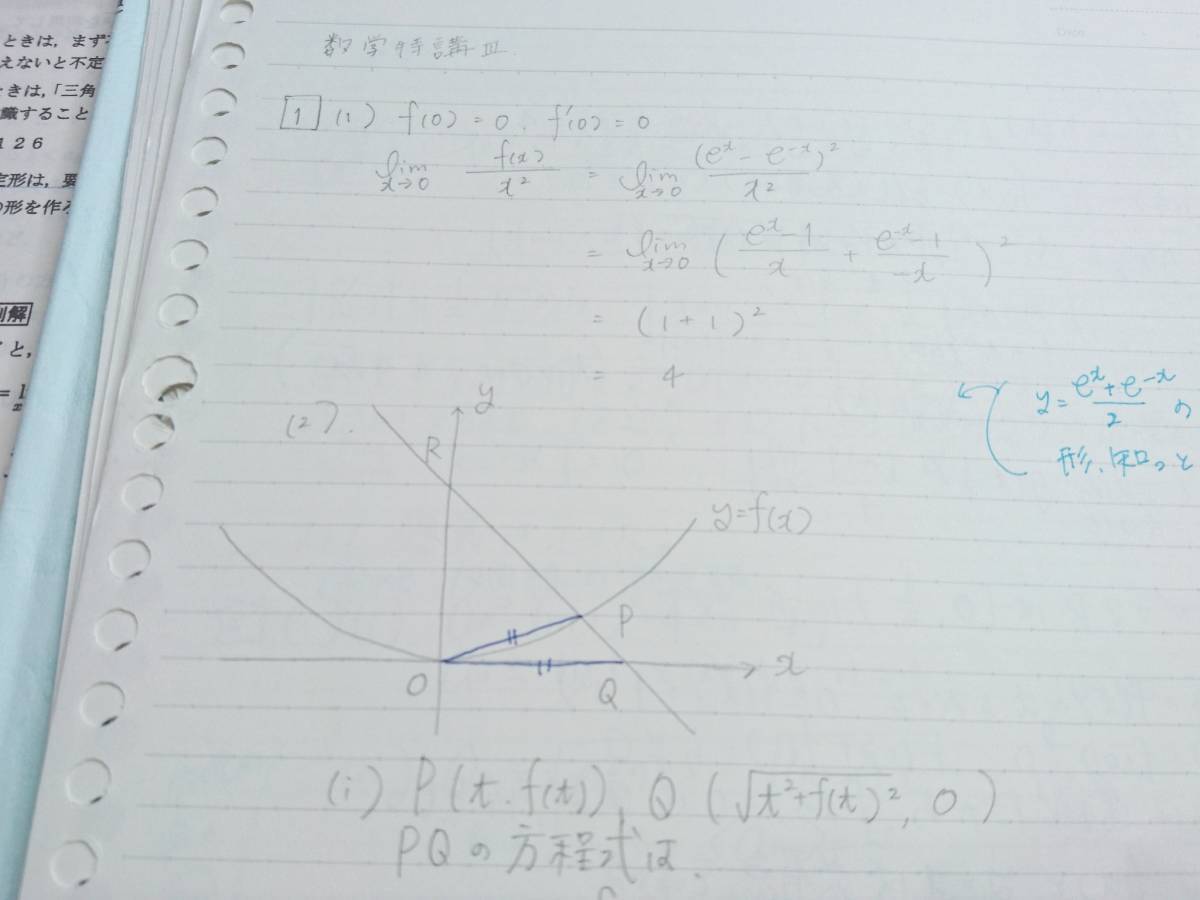 ときは，まず
えないと不定
ときは，「三角
識すること
１２６
定形は，要
の形を作
別解
と，
数学特講Ⅲ.
1 (1) f(0) = 0, f'(0) = 0
lim x→0 f(x)/x² = lim x→0 (eˣ - e⁻ˣ)²/x²
= lim x→0 ( (eˣ-1)/x + (e⁻ˣ-1)/-x )²
= (1+1)²
= 4
y = (eˣ+e⁻ˣ)/2 の
形、知っと
(2).
y
R
y=f(x)
P
O
Q
x
(i) P(t, f(t)), Q(√(t²+f(t)²), 0)
PQの方程式は.